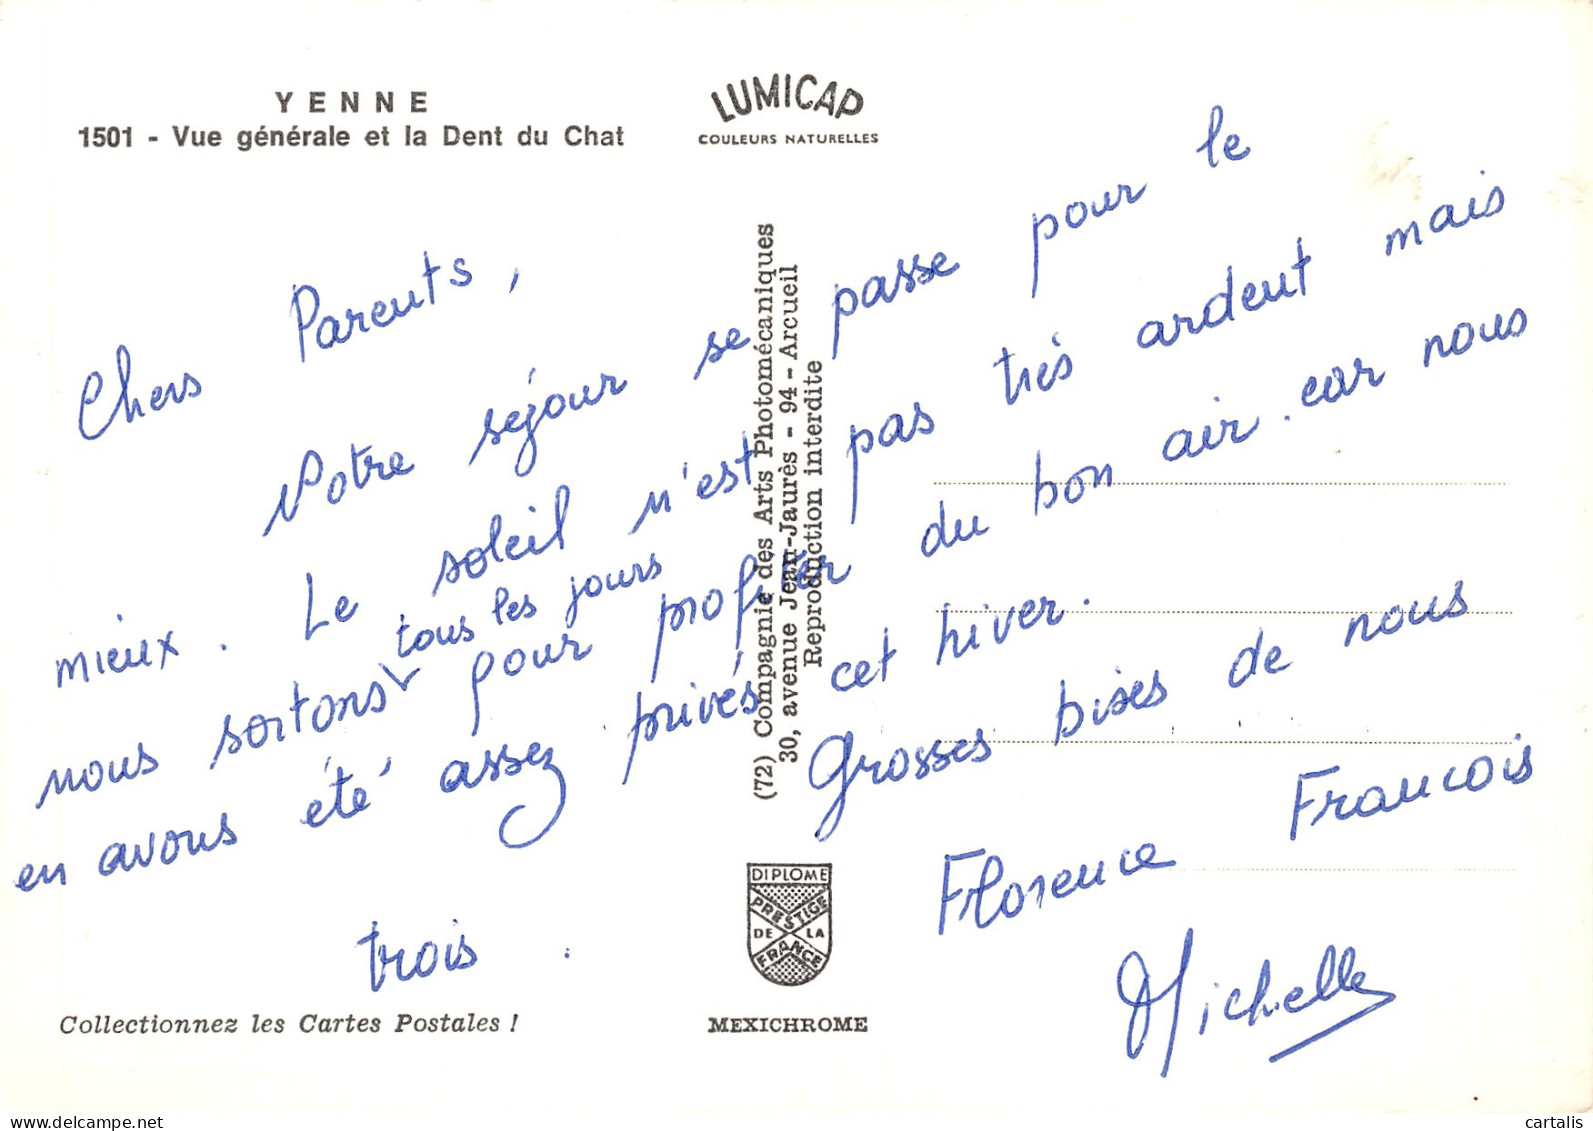 YENNE
1501 - Vue générale et la Dent du Chat
LUMICAP
COULEURS NATURELLES
Chers Parents,
Notre séjour se passe pour le
mieux. Le soleil n'est pas très ardent mais
nous sortons tous les jours pour profiter du bon air. car nous
en avons été assez privés cet hiver.
Grosses bises de nous
trois.
Florence Francois
Michelle
(72) Compagnie des Arts Photomécaniques
30, avenue Jean-Jaurès - 94 - Arcueil
Reproduction interdite
DIPLOME
PRESTIGE
DE LA
FRANCE
Collectionnez les Cartes Postales !
MEXICHROME
delcampe.net
cartalis